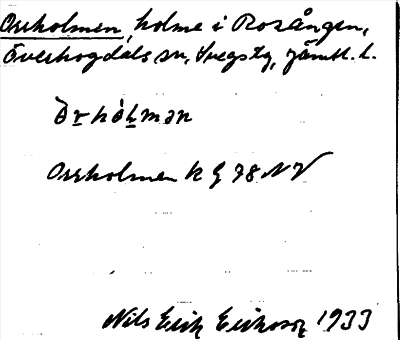 Orrholmen, holme i Rosången,
Överhogdals sn, Svegs tg, Jämtl. l.
Orrholmen k g 78 NV
Nils Erik Eriksson 1933